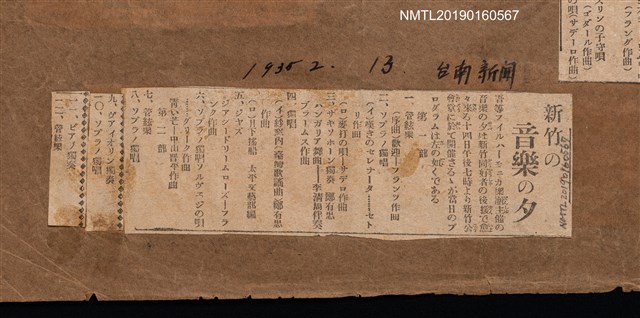 NMTL20190160567
1935 2. 13. 台南新聞
スリンの子守唄
(ゴダール作曲)
の唄(サデーロ作曲)
(フランク作曲)
NMTL20190160567
新竹の
音樂の夕
吾等フイルハーモニカ
主催の
音樂の夕は新竹同好者の後援で愈
々來る十四日午後七時より新竹公
會堂に於て開催さるゝが當日のプ
ログラムは左の如くである
第一部
一、管絃樂
(序曲)歡迎―フランツ作曲
二、ソプラノ獨唱
(イ)嘆きのセレナータ……セト
リ作曲
(ロ)麥打の唄―サデロ作曲
三、サキソホーン獨奏 鄭有忠
ハンガリア舞曲――李淸風伴奏
ブラームス作曲
四、獨唱
作曲
(ロ)月下搖船 太平文藝部編
五、ジヤズ
ジアンニドリームローズ―フラ
ンク作曲
六、ソプラノ獨唱ソルヴエジの唄
―グリーク作曲
青い芒―中山晋平作曲
第二部
七、管絃樂
八、ソプラノ獨唱
九、ヴアイオリン獨奏
一〇、ソプラノ獨唱
一一、ピアノ獨奏
一二、管絃樂